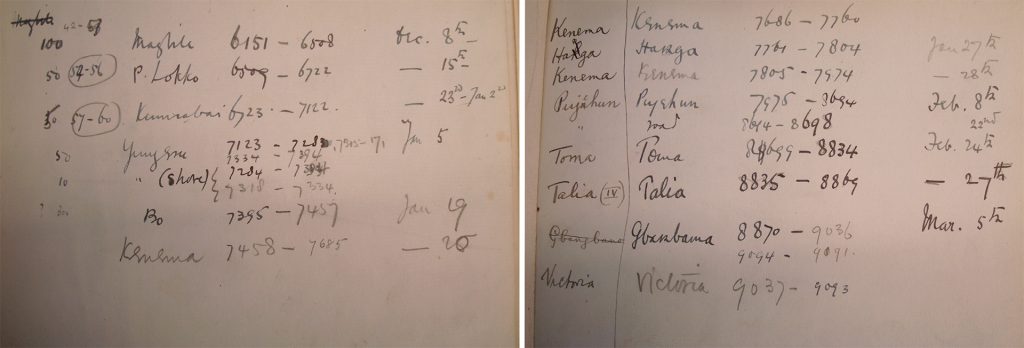 42-51
100 Maghile 6151 - 6508 Dec. 8th
50 52-56 P. Lokko 6509 - 6722 — 15th
50 57-60 6723 - 7122. — 23rd - Jan 2nd
50 7123 - Jan 5
7334 - 7394
10 " (Shore) 7284 -
7318 - 7334
Bo 7395 - 7457 Jan 19
Kenema 7458 - 7685 — 20
Kenema Kenema 7686 - 7760
Hanga Hanga 7761 - 7804 Jan 27th
Kenema Kenema 7805 - 7974 — 28th
Pujehun Pujehun 7975 - 8694 Feb. 8th
" road 8694 - 8698 22nd
Toma Toma 8699 - 8834 Feb. 24th
Talia (IV) Talia 8835 - 8869 — 27th
Gbangbama Gbambama 8870 - 9036 Mar. 5th
9094 - 9091.
Victoria Victoria 9037 - 9093